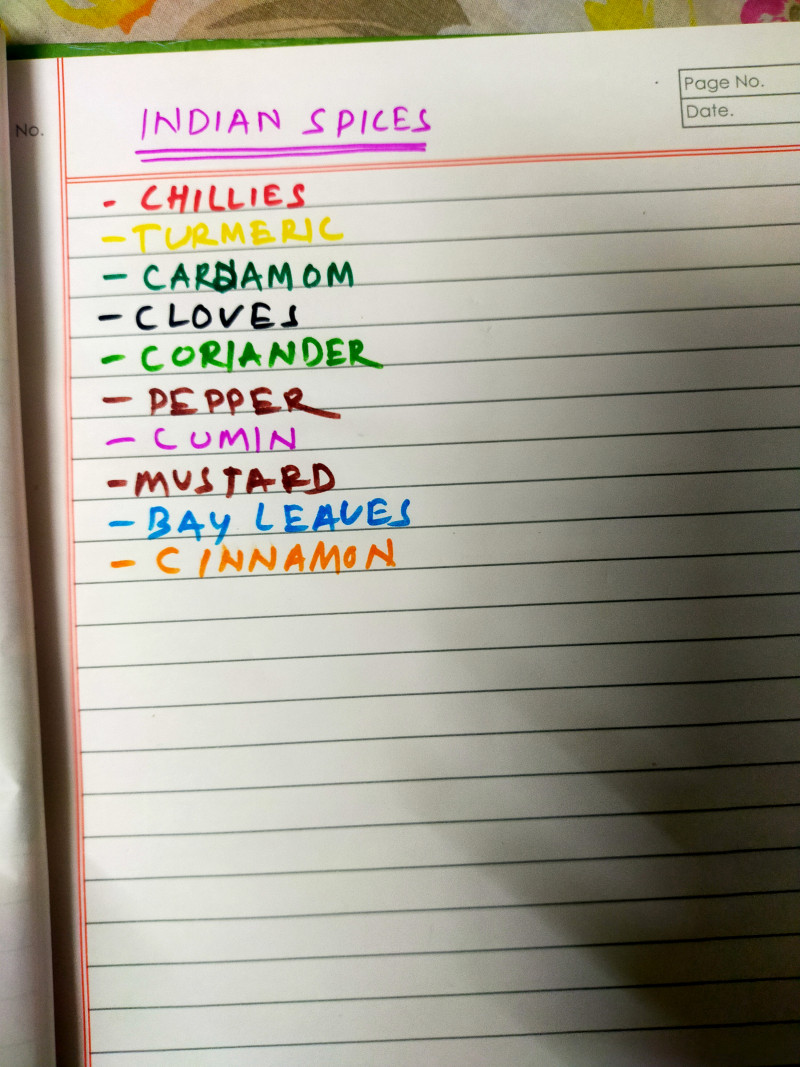 Page No.
Date.
No.
INDIAN SPICES
- CHILLIES
- TURMERIC
- CARDAMOM
- CLOVES
- CORIANDER
- PEPPER
- CUMIN
- MUSTARD
- BAY LEAVES
- CINNAMON